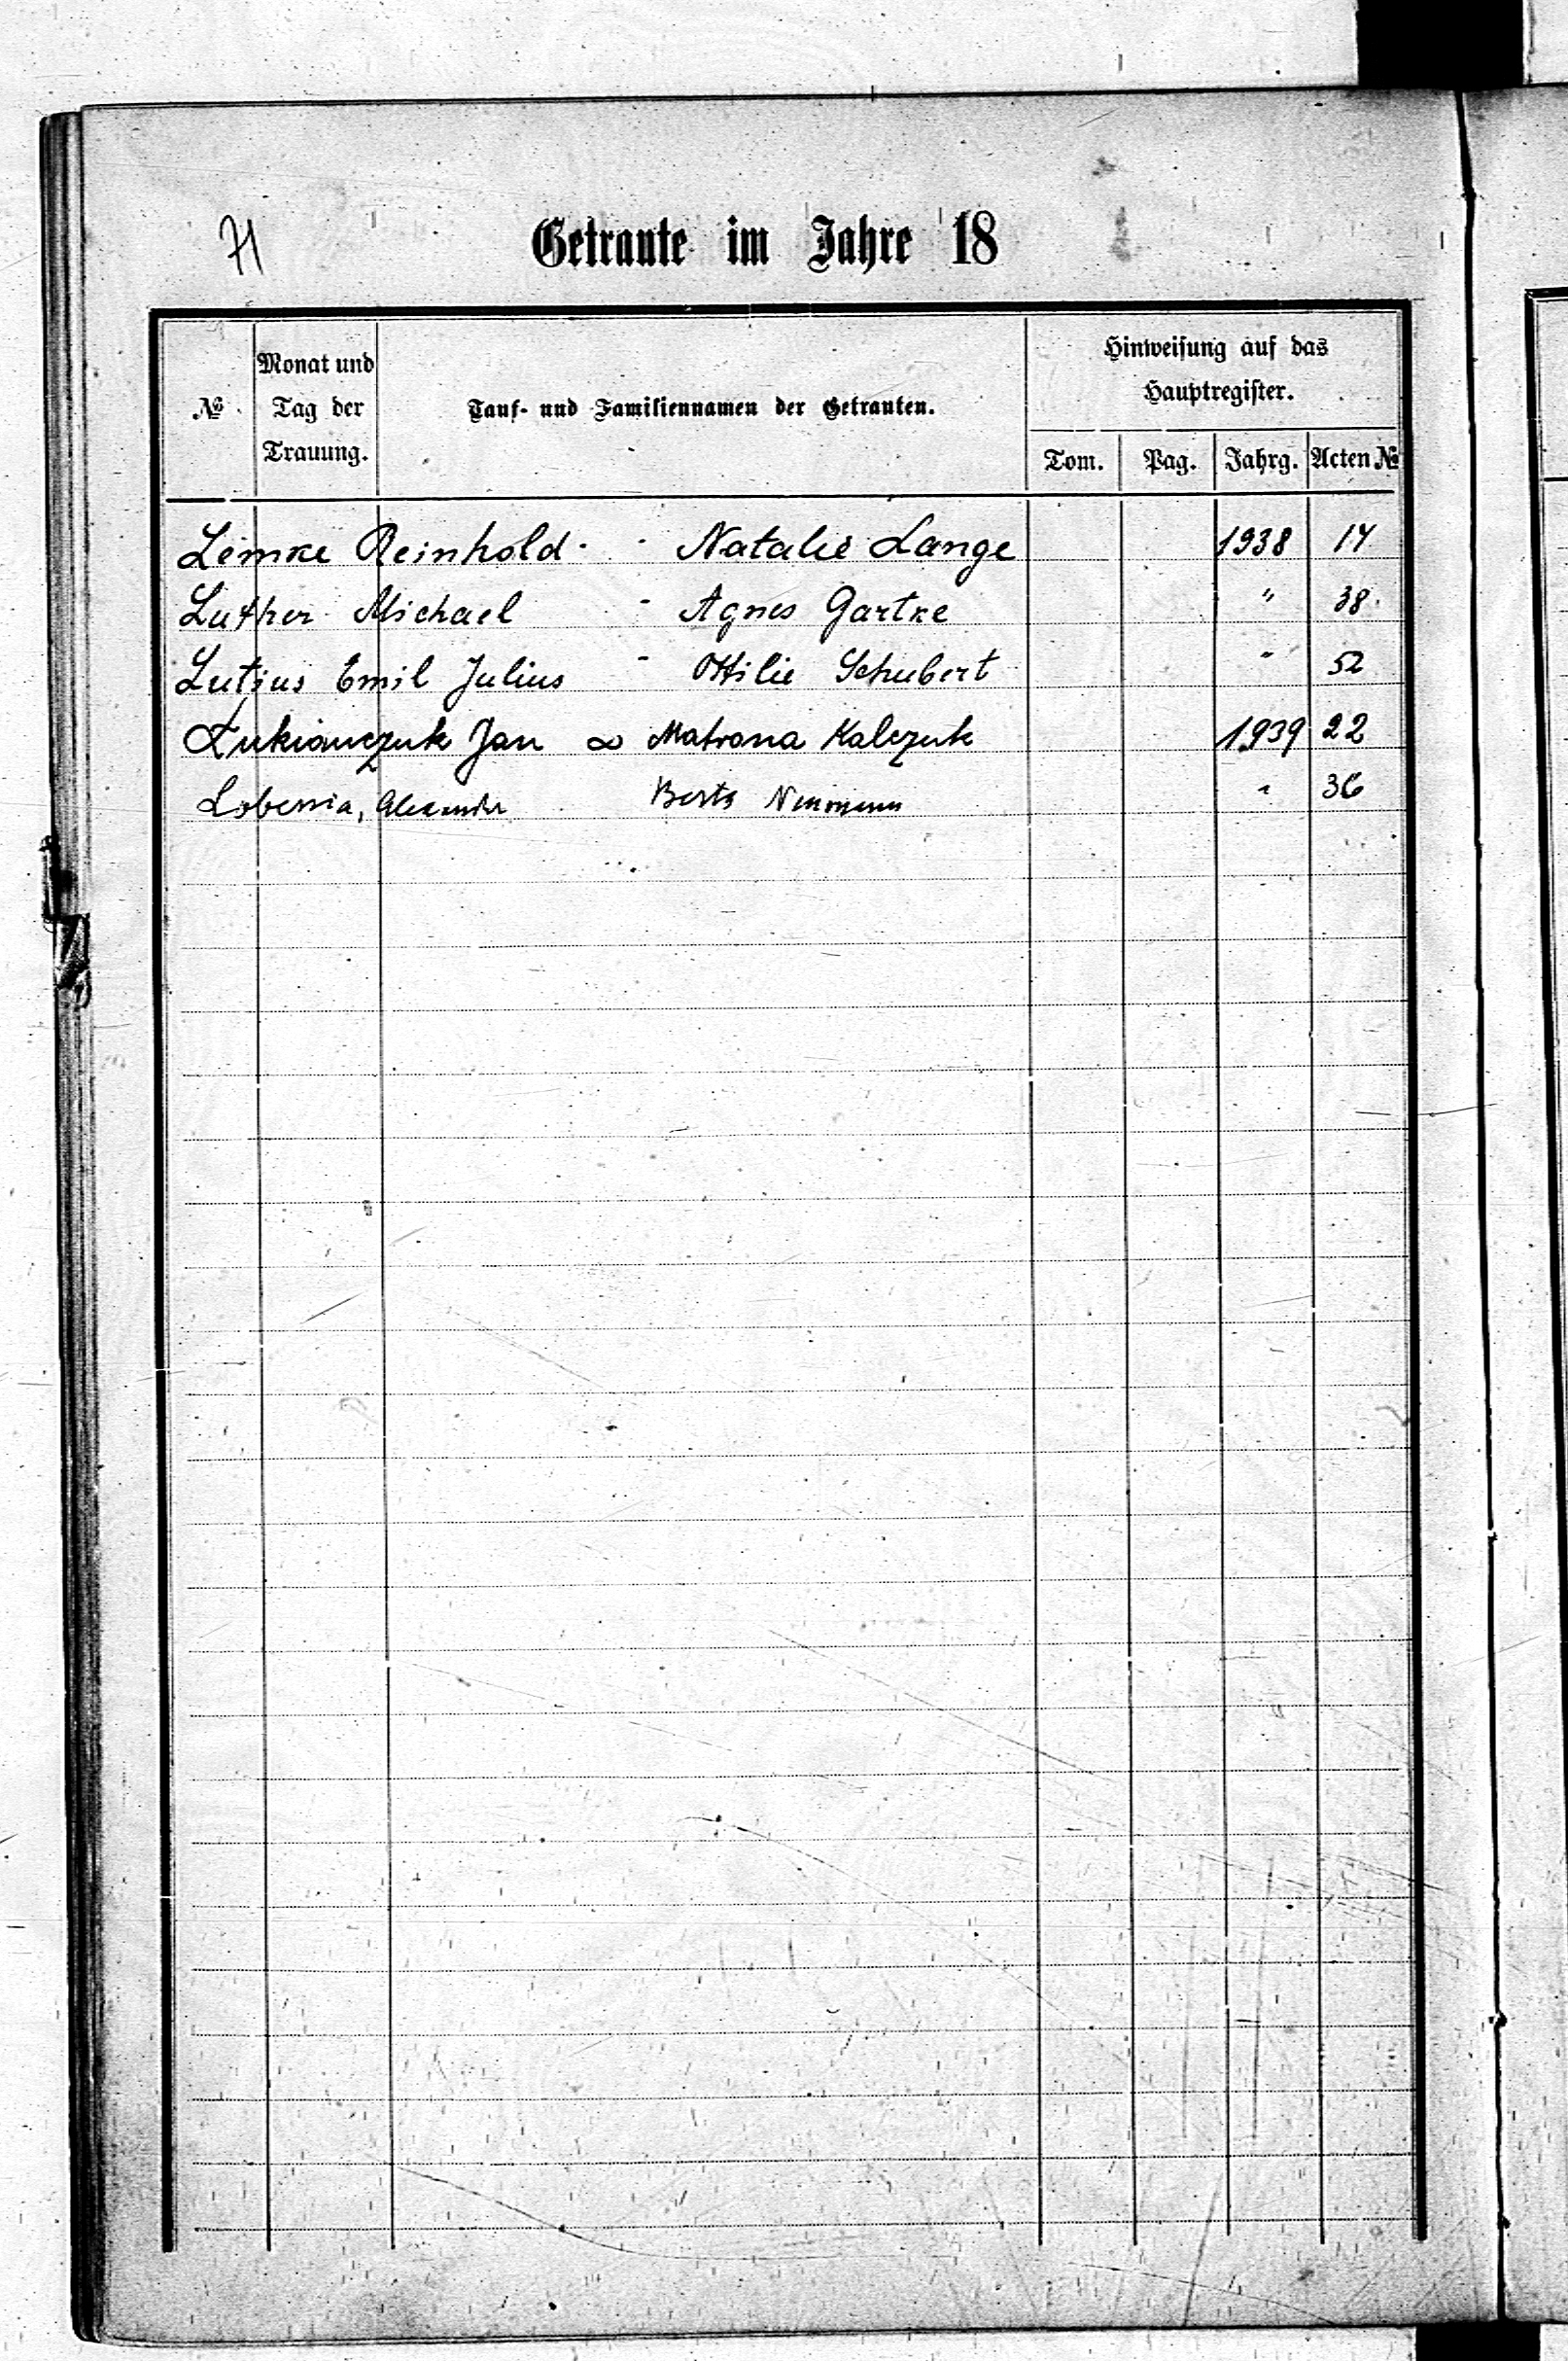 71
Getraute im Jahre 18
№
Monat und
Tag der
Trauung.
Tauf- und Familiennamen der Getrauten.
Hinweisung auf das
Hauptregister.
Tom. Pag. Jahrg. Acten №
Lemke Reinhold - Natalie Lange 1938 14
Luther Michael - Agnes Gartke " 38
Lutjus Emil Julius - Ottilie Schubert " 52
Łukianczuk Jan ∞ Matrona Kalczuk 1939 22
Alexander Berta Neumann " 36